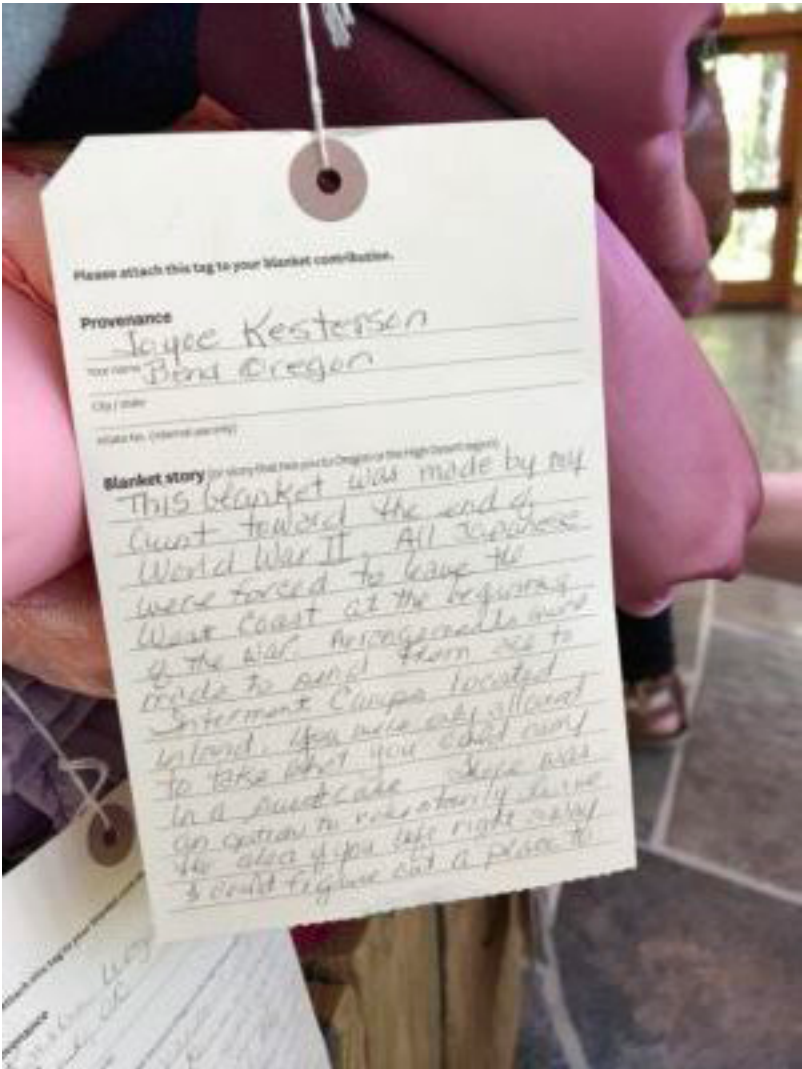 Please attach this tag to your blanket contribution.
Provenance
Joyce Kesterson
Your name
Bend Oregon
City / State
Intake No. (internal use only)
Blanket story (or story that ties you to Oregon or the High Desert region)
This blanket was made by my
Aunt toward the end of
World War II. All Japanese
were forced to leave the
West Coast at the beginning
of the war. Arrangements were
made to send them to
Interment Camps located
inland. You were only allowed
to take what you could carry
in a suitcase. There was
an option to voluntarily leave
the area if you left right away
& could figure out a place to
attach this tag to your